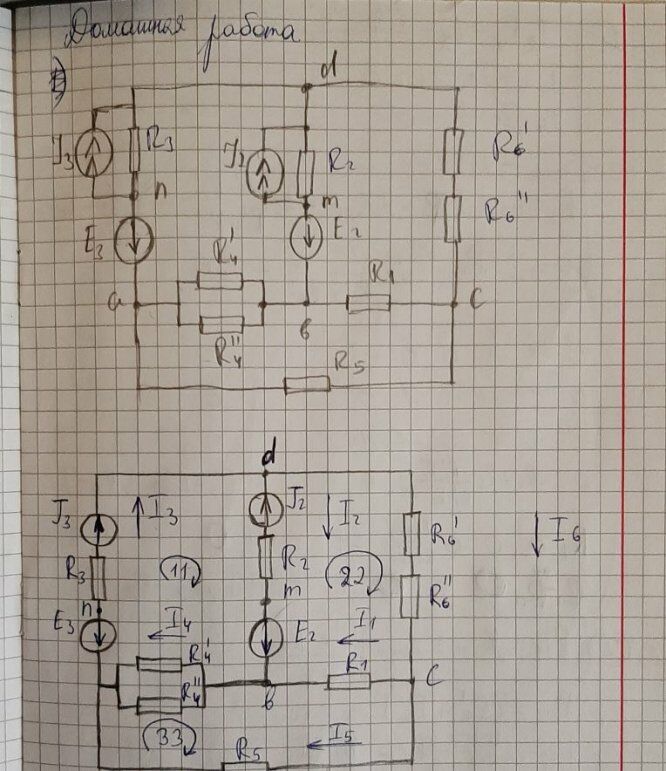 Домашняя работа
1)
d
J₃ R₃ J₂ R₂ R₆'
n m R₆''
E₃ R₄' E₂
R₁
a в c
R₄'' R₅
d
J₃ I₃ J₂ I₂ R₆' I₆
R₃ 11 R₂ 22
n m R₆''
E₃ I₄ E₂ I₁
R₄' R₁
R₄'' в c
33 R₅ I₅